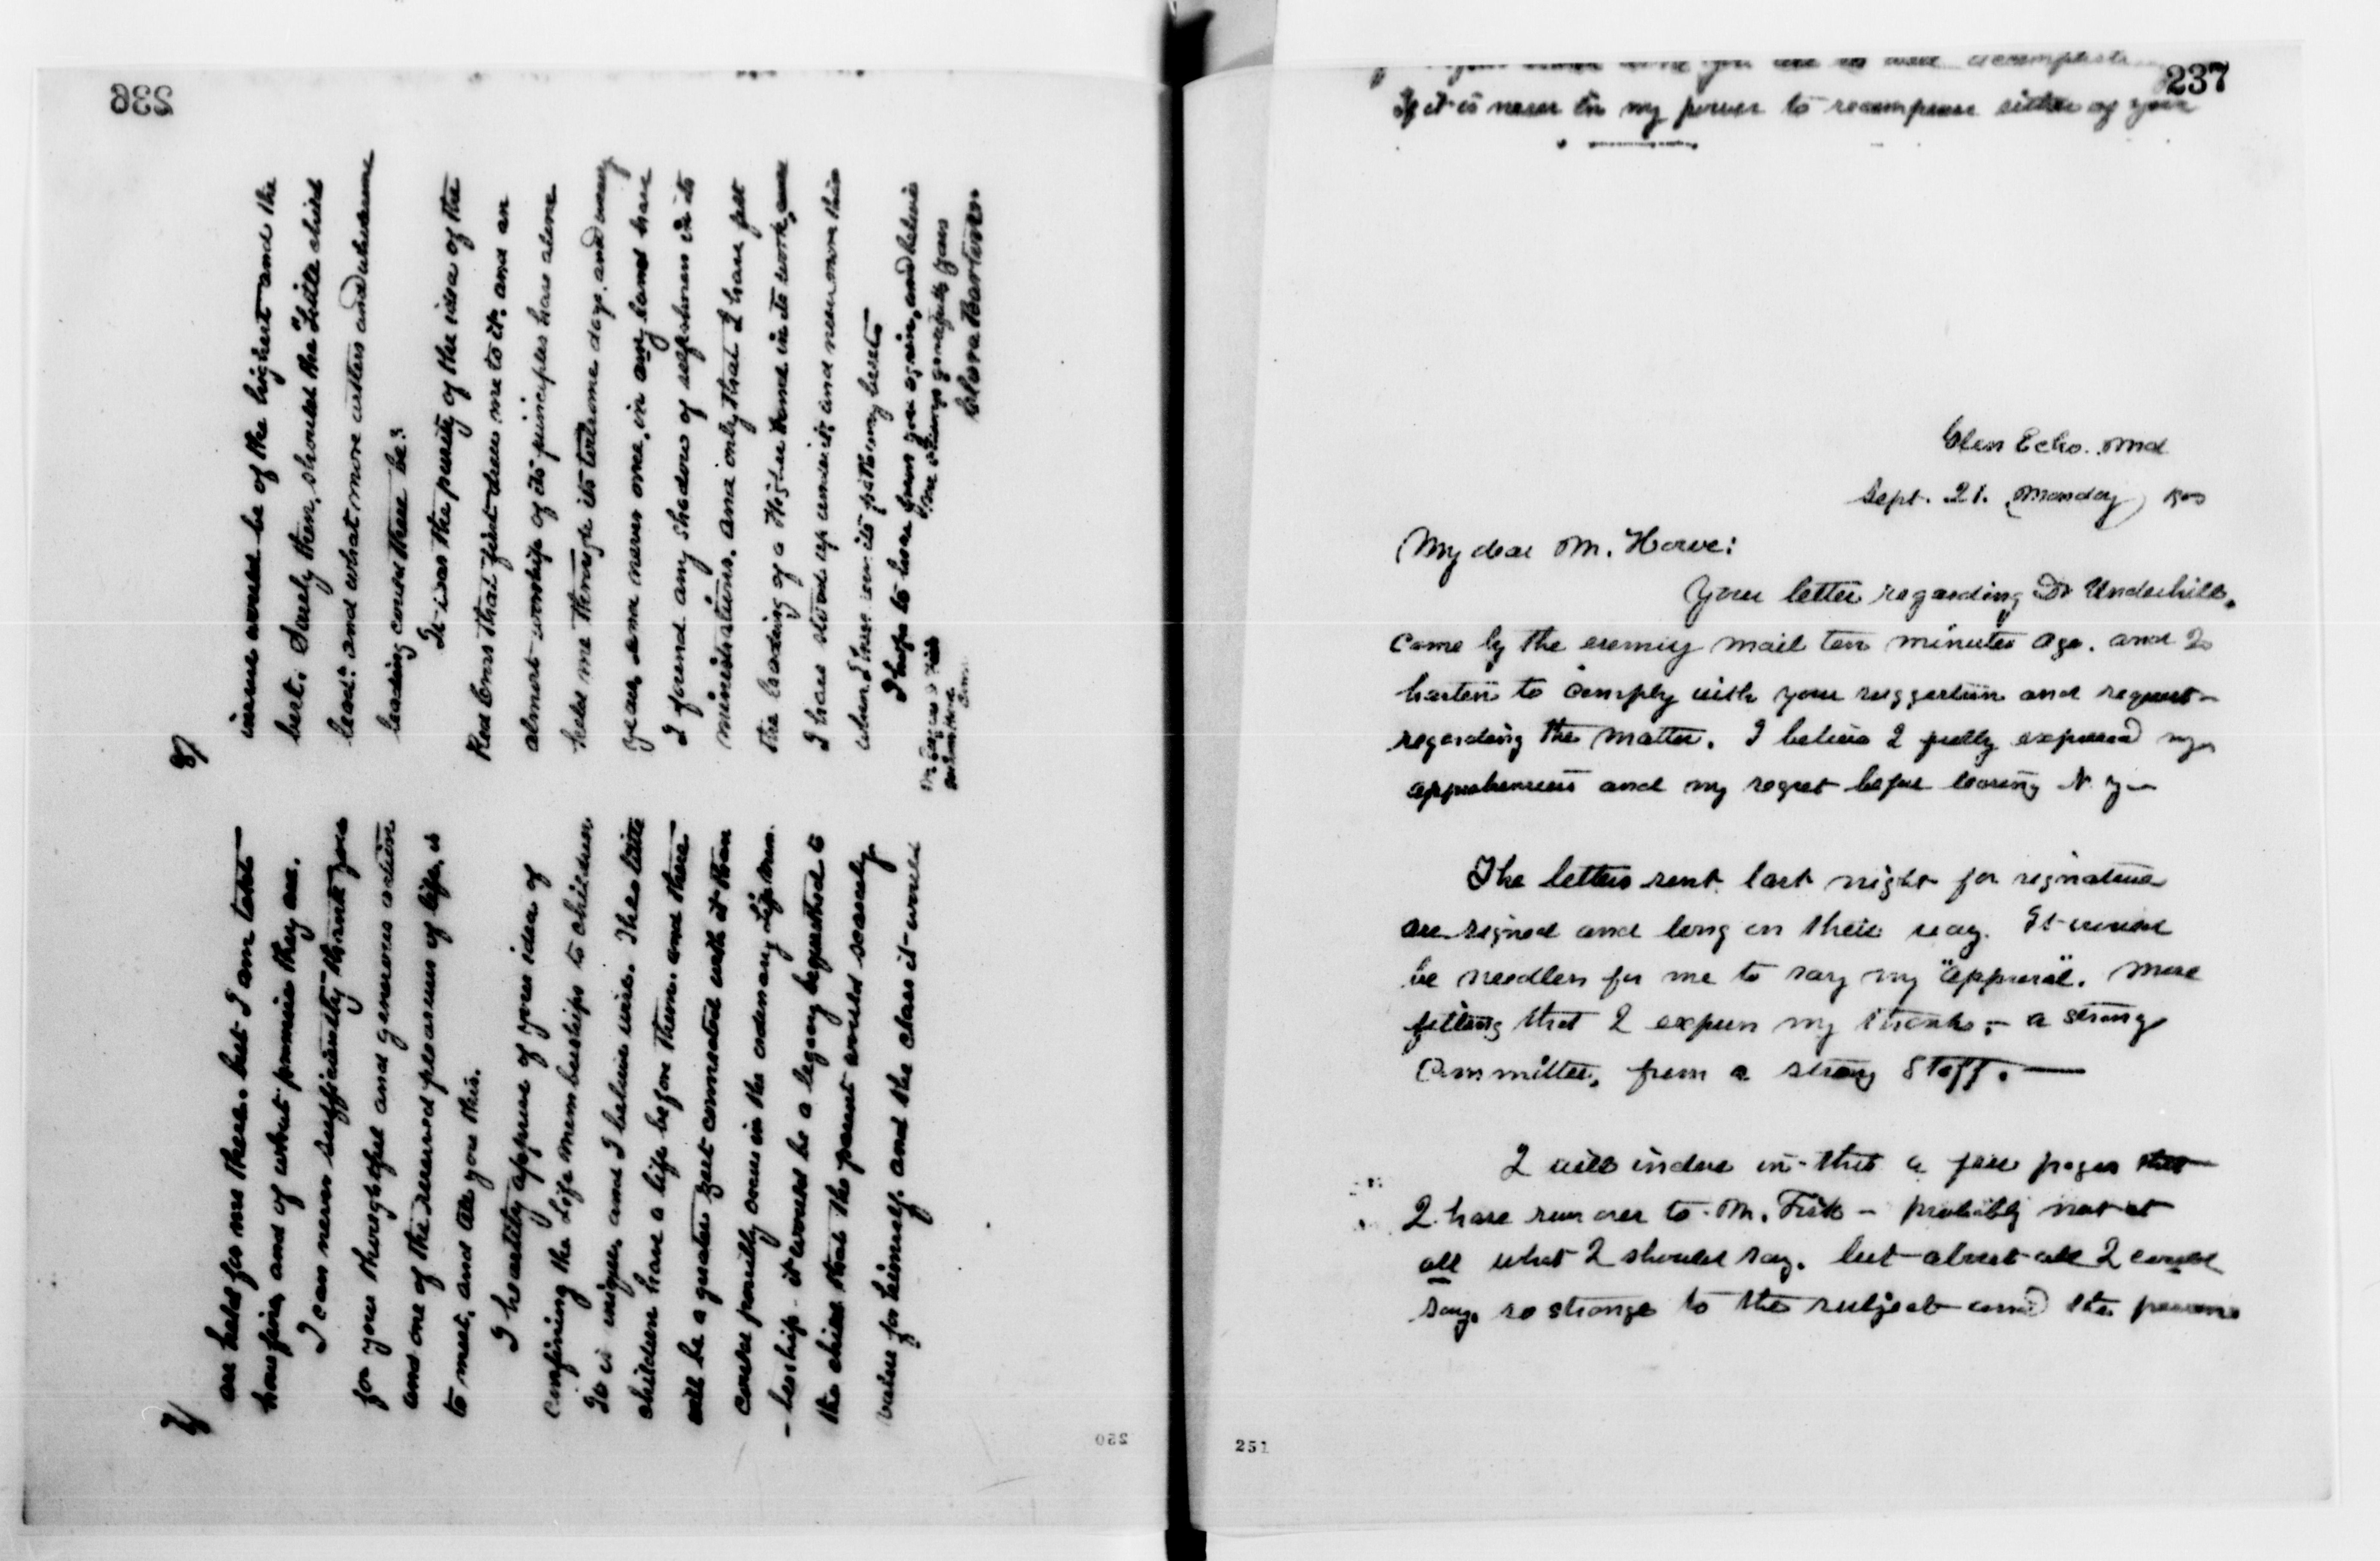 236
7/
are held for me there. but I am told
how fine, and of what promise they are.
I can never sufficiently thank you
for your thoughtful and generous action
and one of the reserved pleasures of life, is
to meet, and tell you this.
I heartily approve of your idea of
confining the Life memberships to children
It is unique, and I believe wise. The little
children have a life before them. and there
will be a greater zest connected with it than
could possibly come in the ordinary Life mem.
- bership - it would be a legacy bequeathed to
the child that the parent would scarcely
value for himself. and the class it would
8/
insure would be of the highest and the
best. Surely then, should the "Little child
lead" and what more artless and wholesome
leading could there be?
It was the purity of the idea of the
Red Cross that first drew me to it. and an
almost worship of its principles has alone
held me through its toilsome days. and weary
years, and never once, in any land have
I found any shadow of selfishness in its
ministrations. and only that I have felt
the leading of a Higher hand in its work,
I have stood up under it; and never more than
when I have seen its pathway beset
I hope to hear from you again, and believe
me always gratefully yours
Clara Barton.
237
If it is never in my power to recompense either of you
Glen Echo. Md
Sept. 21. (Monday)
My dear Mr. Howe:
Your letter regarding Dr Underhill.
came by the evening mail ten minutes ago. and I
hasten to comply with your suggestion and request
regarding the matter. I believe I fully expressed my
apprehensions and my regret before leaving N. Y—
The letters sent last night for signature
are signed and long on their way. It would
be needless for me to say my "approval". More
fitting that I express my thanks; - a strong
Committee, from a strong Staff. —
I will inclose in this a few pages that
I have run over to Mr. - probably not at
all what I should say. but about all I could
say. so strange to the subject and the persons
250
251